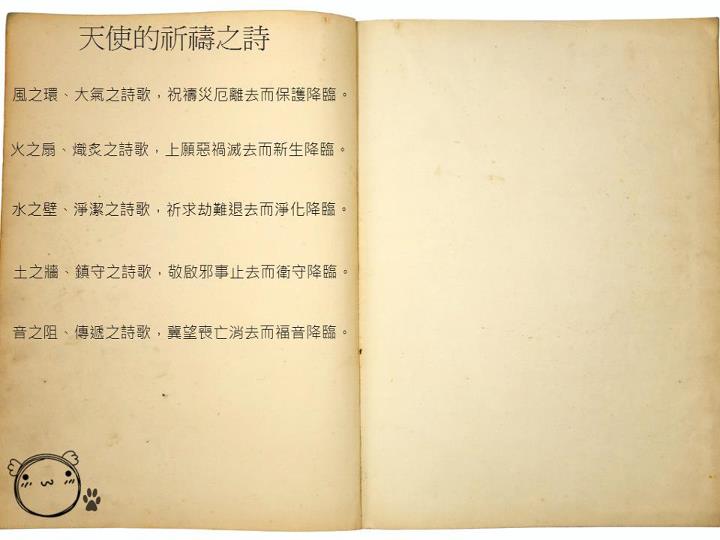 天使的祈禱之詩
風之環、大氣之詩歌，祝禱災厄離去而保護降臨。
火之扇、熾炙之詩歌，上願惡禍滅去而新生降臨。
水之壁、淨潔之詩歌，祈求劫難退去而淨化降臨。
土之牆、鎮守之詩歌，敬啟邪事止去而衛守降臨。
音之阻、傳遞之詩歌，冀望喪亡消去而福音降臨。